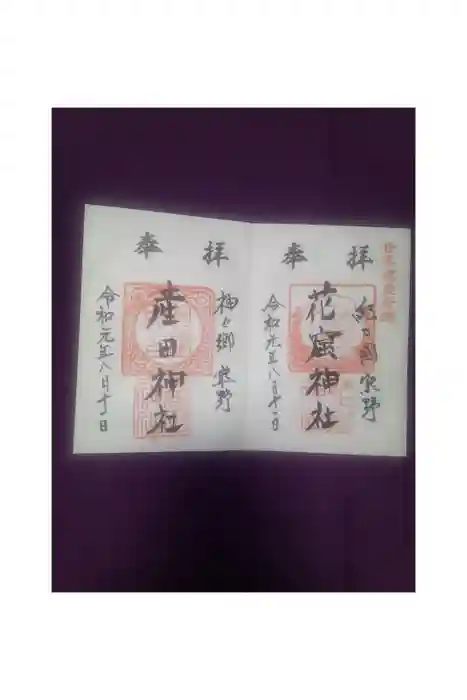 奉拝
紀の国熊野
花窟神社
令和元年八月十一日
奉拝
神々郷熊野
産田神社
令和元年八月十一日